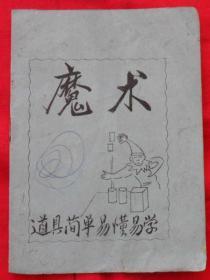 魔术
道具简单易懂易学